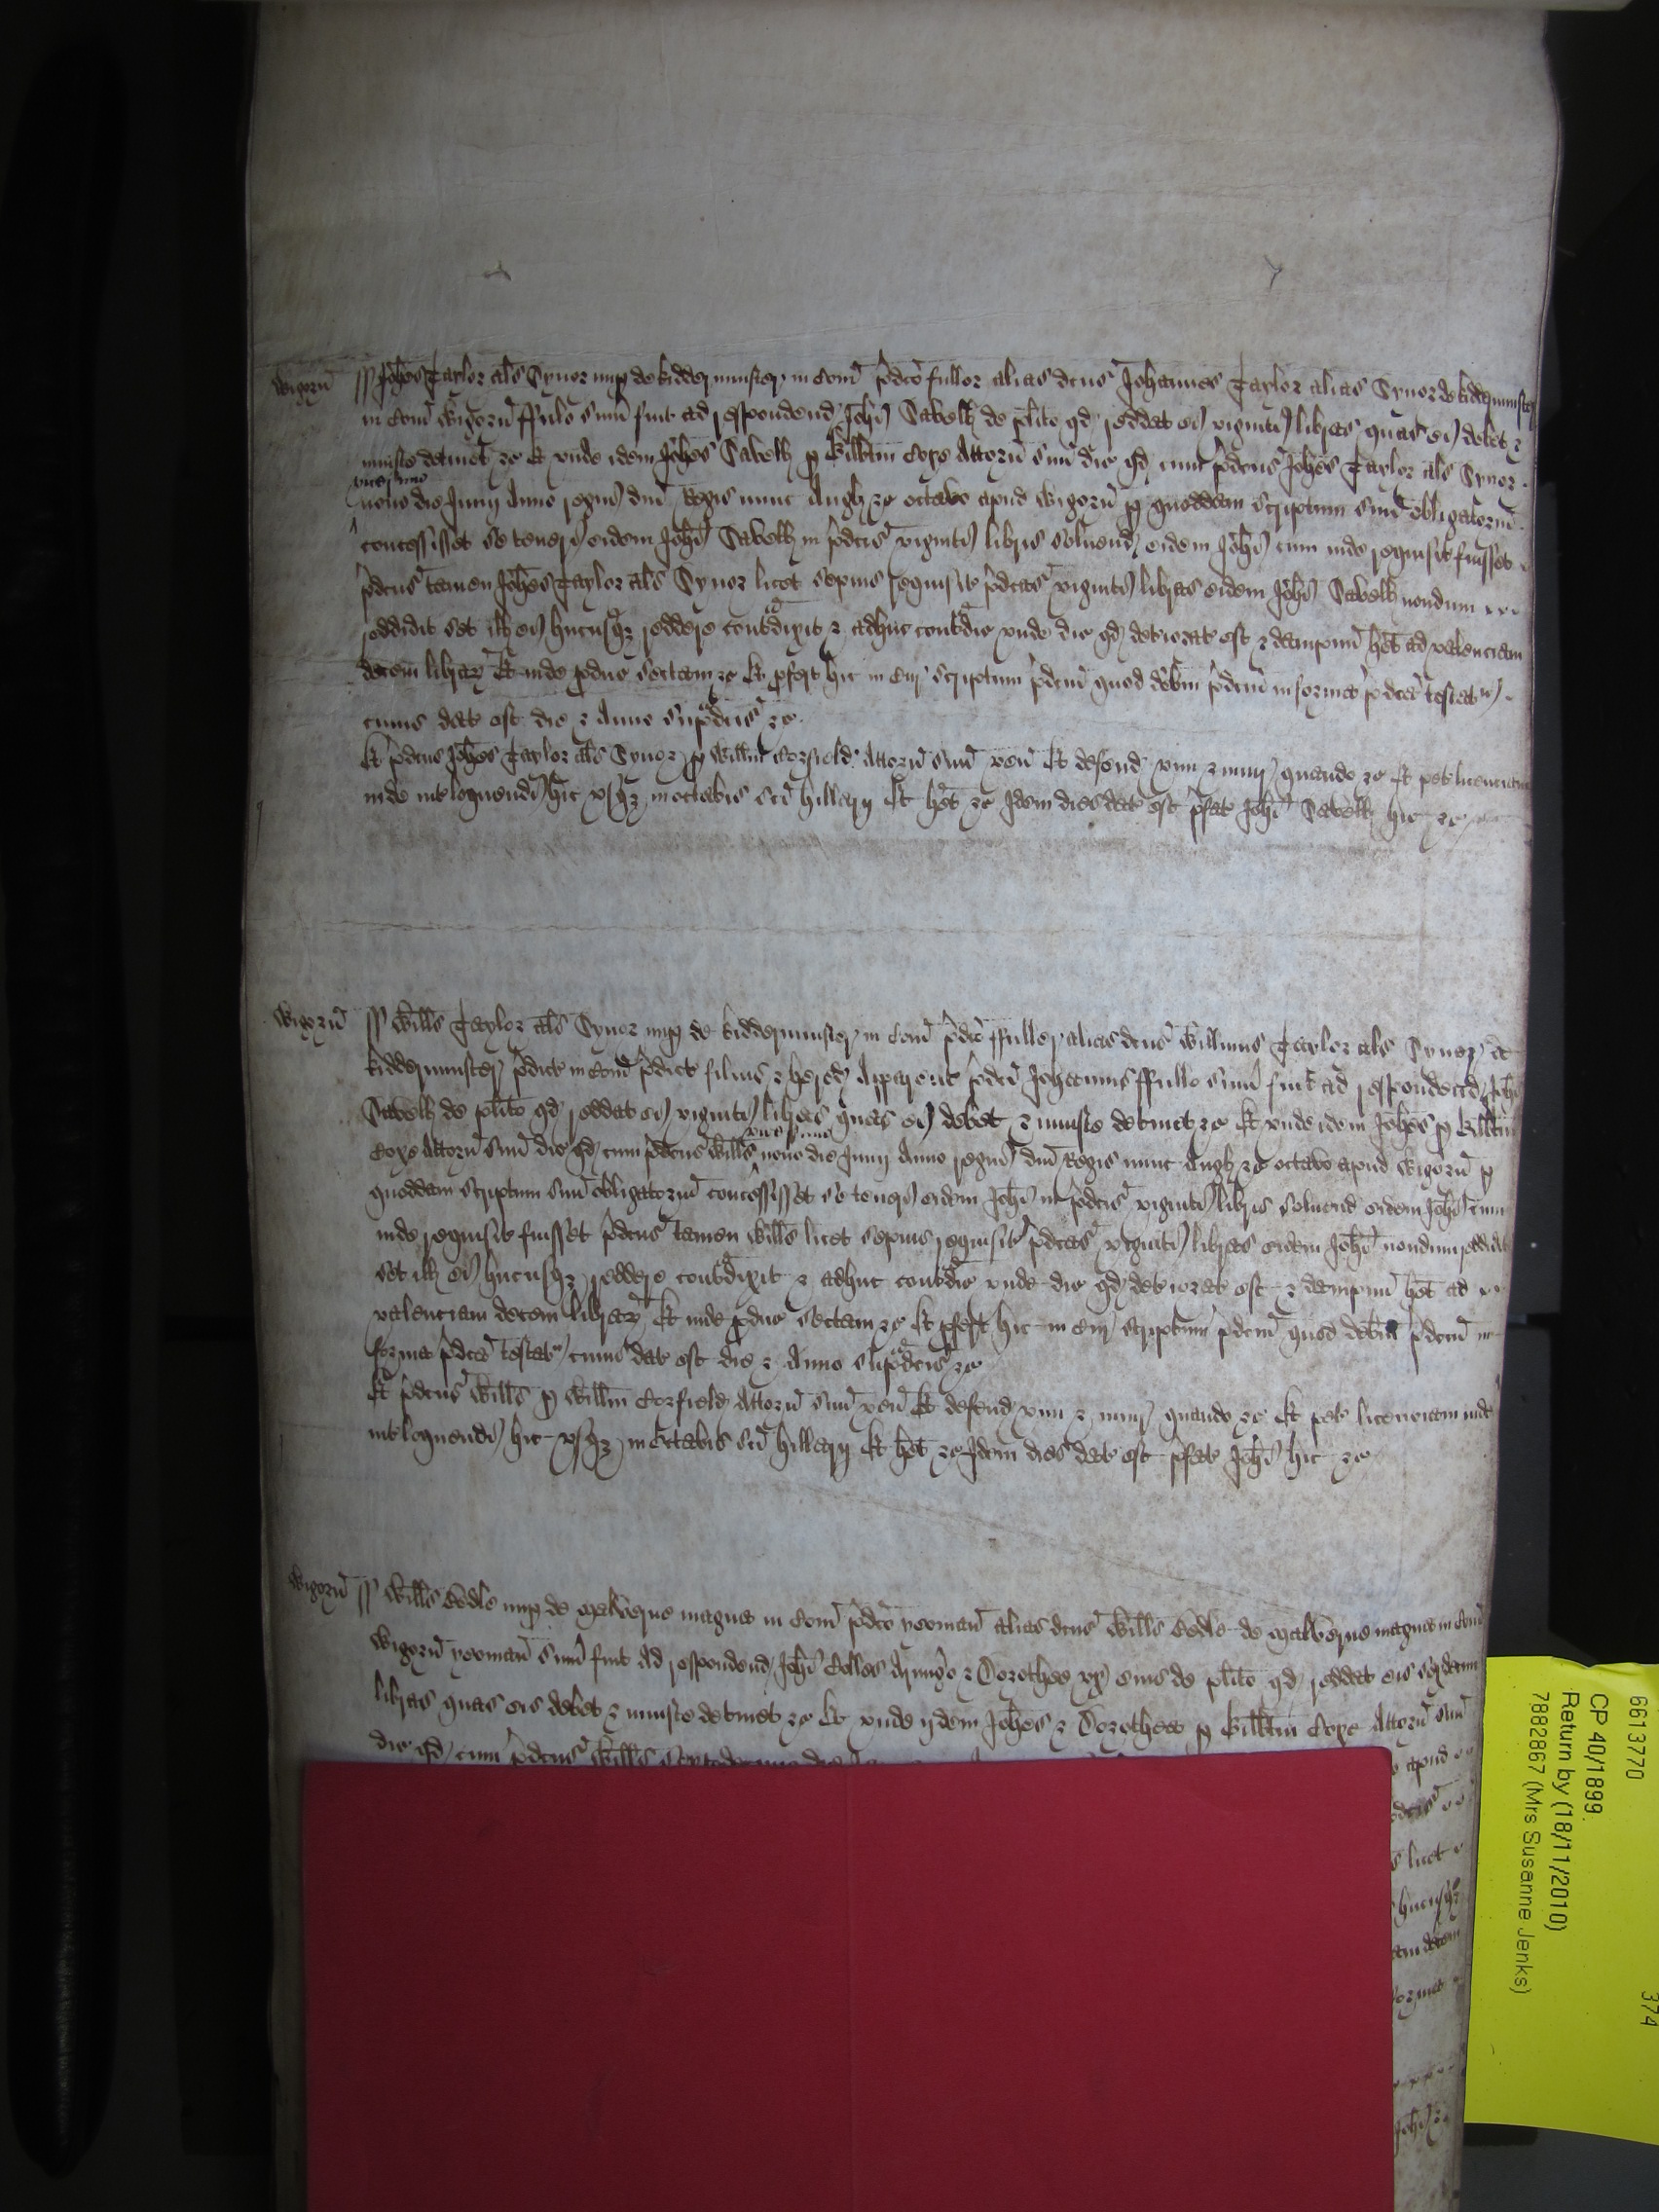 Wigorn̄ ss Joh̄es Taylor al̄s Synor nup de Kiddermynster in Com̄ p̄dc̄o fuller alias dc̄us Johannes Taylor alias Synor de Kiddermynster
in Com̄ Wigorn̄ ffulo sum̄ fuit ad respondend Joh̄i Sabell de pl̄ito qd reddat ei viginti libras quas ei debet &
iniuste detinet &c Et unde idem Joh̄es Sabell p Gilb̄tum Cope Attorn̄ suū dic qd cum p̄dc̄us Joh̄es Taylor al̄s Synor
vicesimo
nono die Junij Anno regni dn̄i Regis nunc Angl &c octavo apud Wigorn̄ p quoddam scriptum suū obligatoriū
concessisset se teneri eidem Joh̄i Sabell in p̄dc̄is viginti libris solvend eidem Joh̄i cum inde requisit fuisset
p̄dc̄us tamen Joh̄es Taylor al̄s Synor licet sepius requisit p̄dc̄as viginti libras eidem Joh̄i Sabell nondum
reddidit set ill ei hucusq reddere contradixit & adhuc contradic unde dic qd deteriorat est & dampnū h̄et ad valenciam
decem librar Et inde produc sectam &c Et profert hic in Cur scriptum p̄dc̄m̄ quod deb̄m p̄dc̄m̄ in forma p̄dc̄a testat
cuius dat est die & Anno sup̄adc̄is &c
Et p̄dc̄us Joh̄es Taylor al̄s Synor p Will̄m Corfield Attorn̄ suū ven̄ Et defend vim & iniur quando &c Et pet licenciam
inde int̄loquendi hic usq in octabis sc̄i Hillarij Et h̄et &c Idem dies dat est p̄fat Joh̄i Sabell hic &c
Wigorn̄ ss Will̄s Taylor al̄s Synor nup de Kiddermynster in Com̄ p̄dc̄o ffuller alias dc̄us Will̄mus Taylor al̄s Synor de
Kiddermynster p̄dict in Com̄ p̄dict filius & hered Apparent p̄dc̄i Johannis ffullo sum̄ fuit ad respondend Joh̄i
Sabell de pl̄ito qd reddat ei viginti libras quas ei debet & iniuste detinet &c Et unde idem Joh̄es p Gilb̄tum
vicesimo
Cope Attorn̄ suū dic qd cum p̄dc̄us Will̄s nono die Junij Anno regni dn̄i Regis nunc Angl &c octavo apud Wigorn̄ p
quoddam scriptum suū obligatoriū concessisset se teneri eidem Joh̄i in p̄dc̄is viginti libris solvend eidem Joh̄i cum
inde requisit fuisset p̄dc̄us tamen Will̄s licet sepius requisit p̄dc̄as viginti libras eidem Joh̄i nondum reddidit
set ill ei hucusq reddere contradixit & adhuc contradic unde dic qd deteriorat est & dampnū h̄et ad
valenciam decem librar Et inde produc sectam &c Et profert hic in Cur scriptum p̄dc̄m̄ quod deb̄m p̄dc̄m̄ in
forma p̄dc̄a testat cuius dat est die & Anno sup̄adc̄is &c
Et p̄dc̄us Will̄s p Will̄m Corfield Attorn̄ suū ven̄ Et defend vim & iniur quando &c Et pet licenciam inde
int̄loquendi hic usq in octabis sc̄i Hillarij Et h̄et &c Idem dies dat est p̄fat Joh̄i hic &c
Wigorn̄ ss Will̄s Bedle nup de Malverne magna in Com̄ p̄dc̄o yeoman̄ alias dc̄us Will̄s Bedle de Malverne magna in Com̄
Wigorn̄ yeoman̄ sum̄ fuit ad respondend Joh̄i Colles Armiḡo & Dorothee ux̄i eius de pl̄ito qd reddat eis
libras quas eis debet & iniuste detinet &c Et unde ijdem Joh̄es & Dorothea p Gilb̄tum Cope Attorn̄ suū
dic qd cum p̄dc̄us Will̄s apud
licet
hucusq
decem
forma
Joh̄i
6613770 374
CP 40/1899
Return by (18/11/2010)
7882867 (Mrs Susanne Jenks)